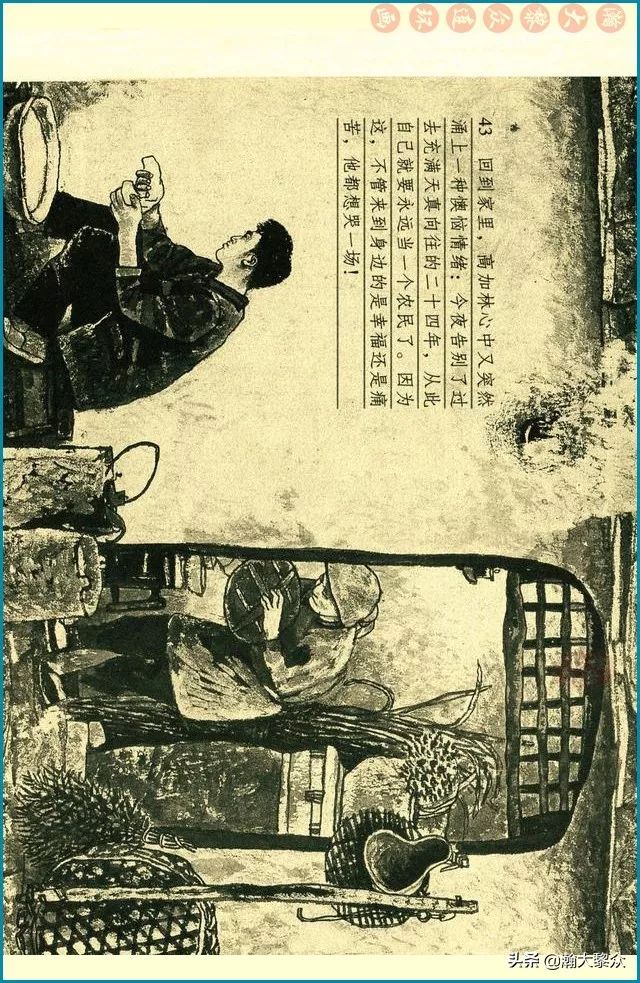 瀚大黎众连环画
43 回到家里，高加林心中又突然
涌上一种懊恼情绪：今夜告别了过
去充满天真向往的二十四年，从此
自己就要永远当一个农民了。因为
这，不管来到身边的是幸福还是痛
苦，他都想哭一场！
头条 @瀚大黎众